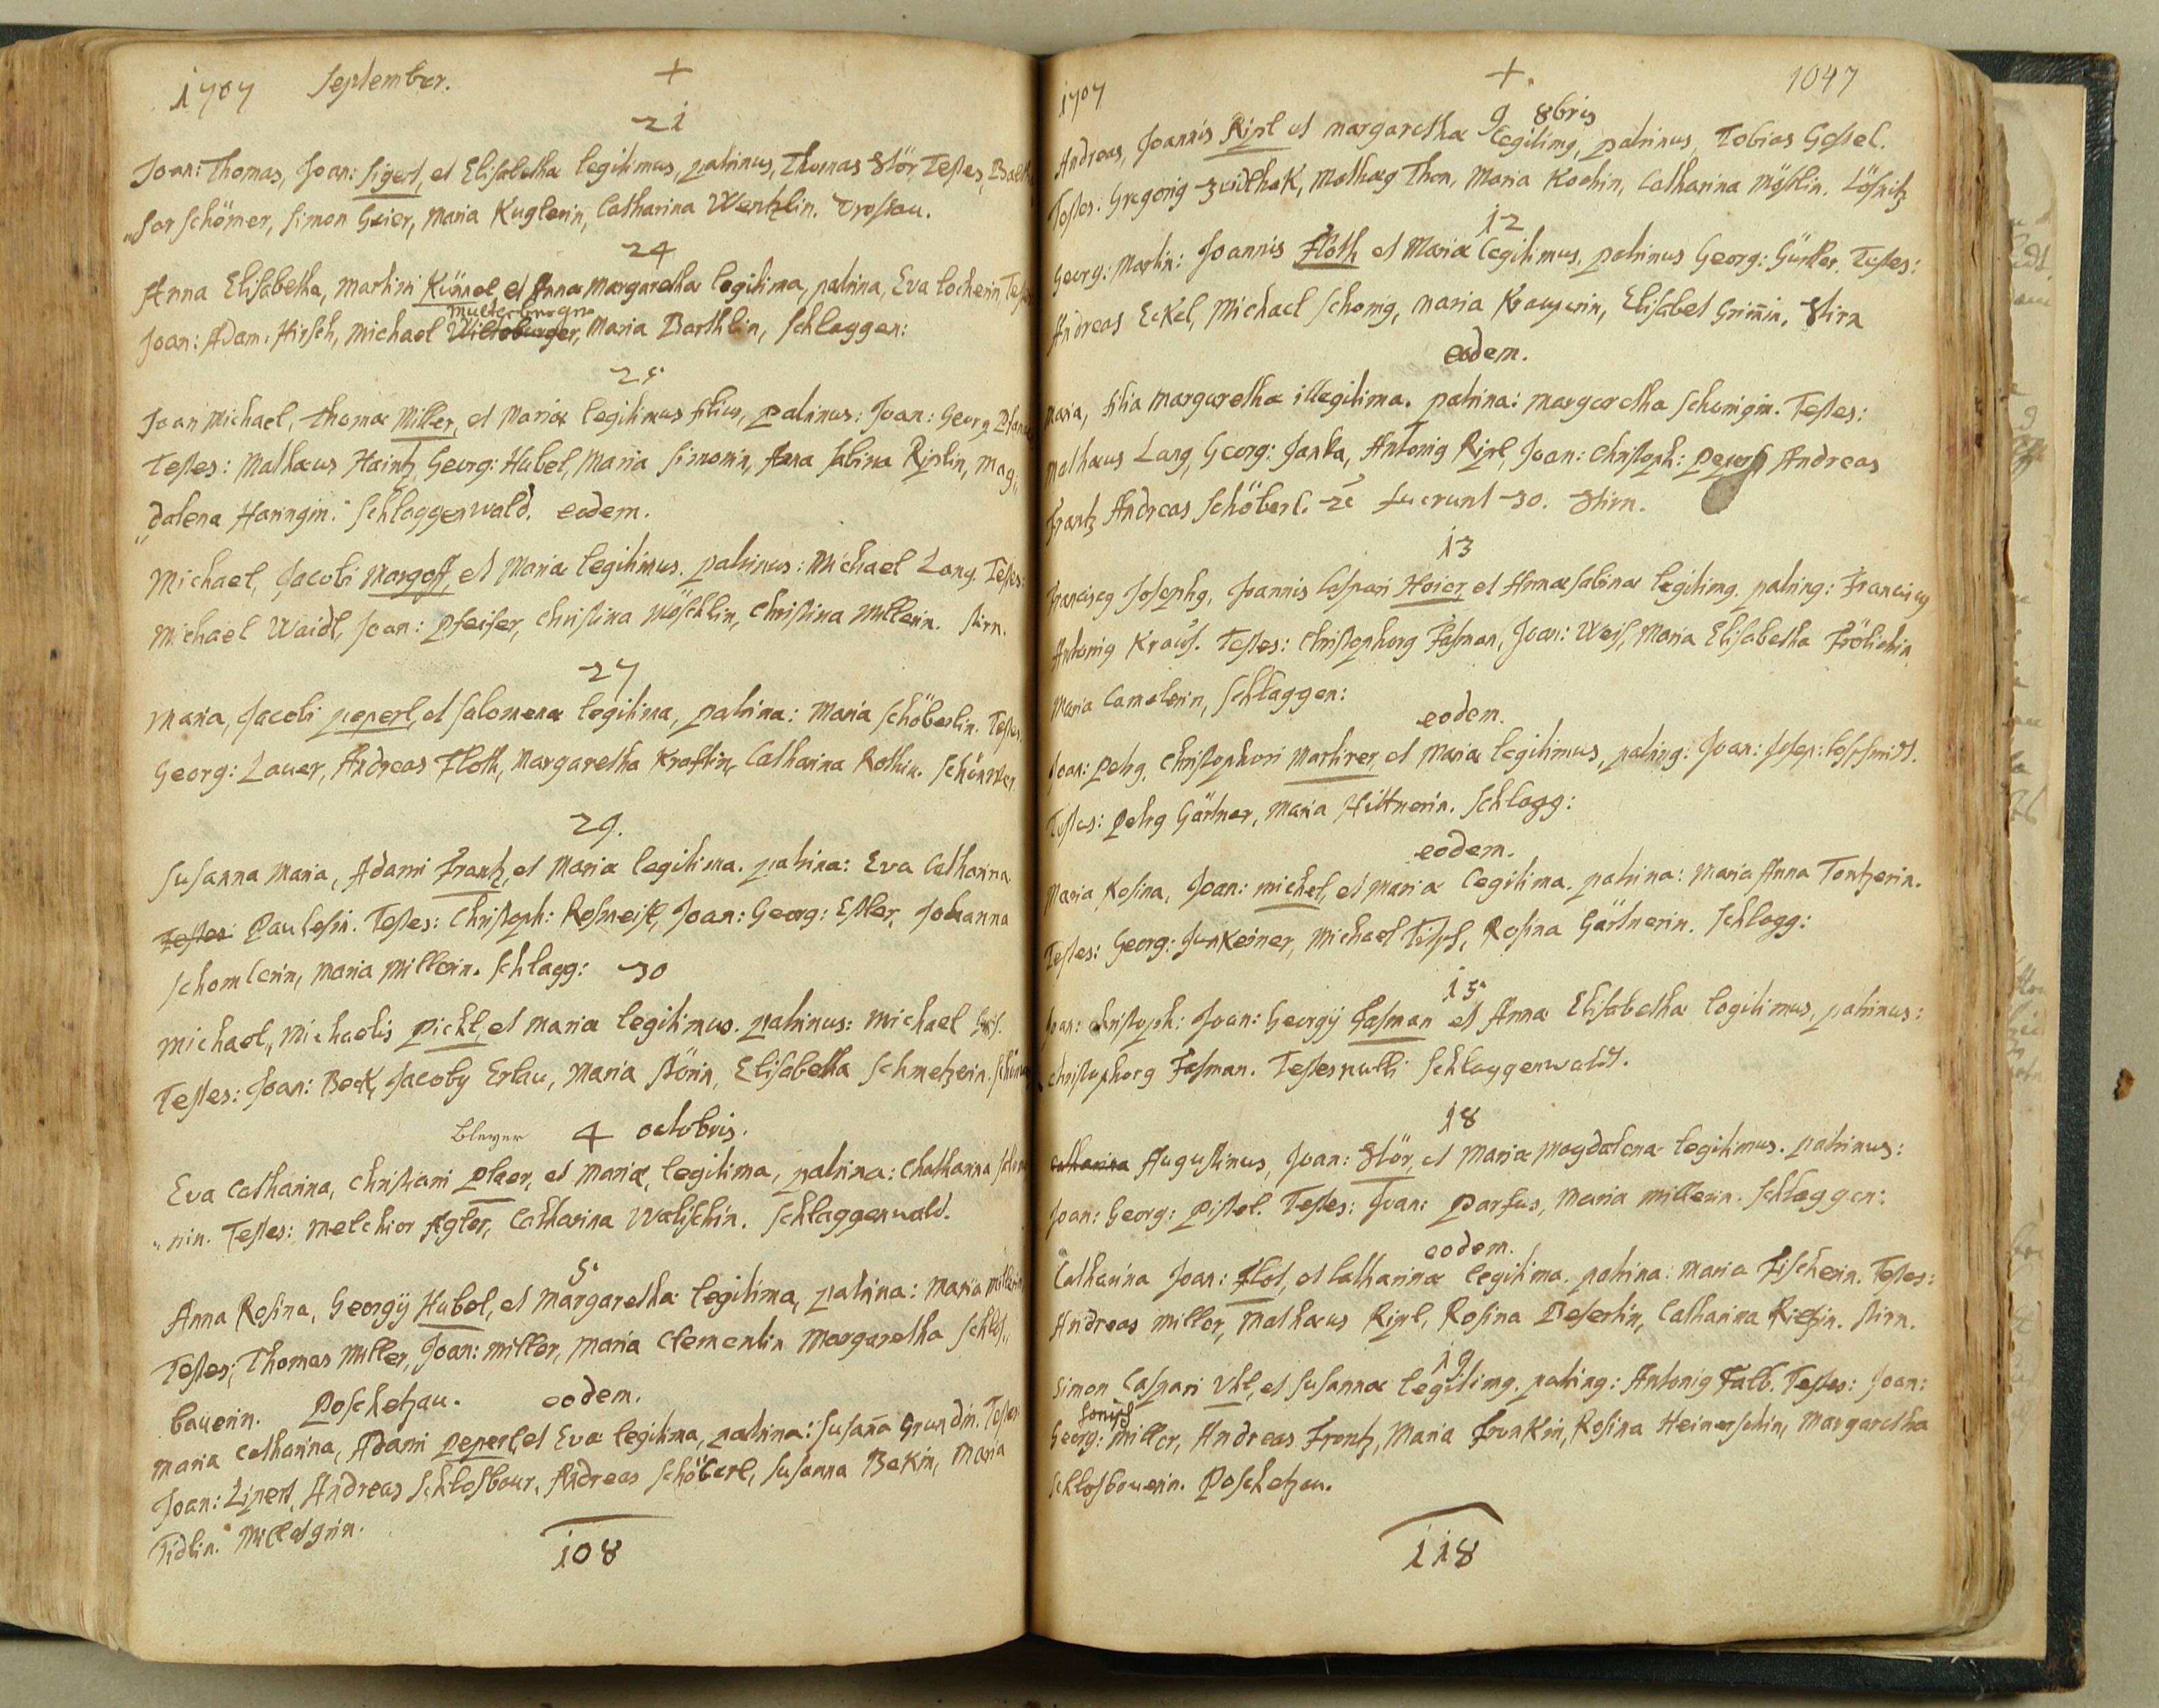 1707 September. +
21
Joan: Thomas, Joan: Sigert, et Elisabetha legitimus, patrinus, Thomas Stör, Testes, Balth
„sar Schömer, Simon Geier, Maria Kuglerin, Catharina Wentzlin. Trossau.
24
Anna Elisabetha, Martini Künnel et Anna Margaretha legitima, patrina, Eva Locherin, Testes
Joan: Adam Hirsch, Michael Maria Barthlin, Schlaggen:
25
Joan Michael, Thomæ Miller, et Mariæ legitimus filius, patrinus: Joan: Georg
Testes: Mathæus Haintz, Georg: Hubel, Maria Simonin, Anna Sabina Riplin, Mag„
„dalena Haningin. Schlaggenwald. eodem.
Michael, Jacobi Margoff, et Maria legitimus. patrinus: Michael Lang. Testes:
Michael Waidl, Joan: Pfeifer, Christina Möschlin, Christina Millerin. Stirn.
27
Maria, Jacobi peperl, et Salomenæ legitima, patrina: Maria Schöberlin. Testes:
Georg: Lauer, Andreas Floth, Margaretha Kraftin, Catharina Rothin. Schönwer
29.
Susanna Maria, Adami Frantz, et Maria legitima. patrina: Eva Catharina
Testes: Paulesin. Testes: Christoph: Rosmeisl, Joan: Georg: Esler, Johanna
Schomlerin, Maria Millerin. Schlagg: 30
Michael, Michaelis pickl, et Maria legitimus. patrinus: Michael
Testes: Joan: Beck, Jacoby Erlau, Maria Störin, Elisabetha Schmetzerin.
bleyer 4 octobris.
Eva Catharina, Christiani plaer, et Mariæ, legitima, patrina: Chatharina
„nin. Testes: Melchior Agler, Catharina Walschin. Schlaggenwald.
5.
Anna Rosina, Georgÿ Hubel, et Margaretha legitima, patrina: Maria Millerin
Testes: Thomas Miller, Joan: Miller, Maria Clementin Margaretha Schlos„
bauerin. Poschetzau. eodem.
Maria Catharina, Adami peperl, et Eva legitima, patrina: Susana Grundin. Testes
Joan: Lipert, Andreas Schlosbaur, Andreas Schöberl, Susanna Bekin, Maria
Tidlin. Millesgrin.
108
1707 + 1047
9 8bris
Andreas, Joannis Ripl et Margaretha legitimg, patrinus, Tobias Gessel.
Testes: Gregorig Zwidthak, Mathæg Thon, Maria Kochin, Catharina Möstlin. Lösnitz
12
Georg: Martin: Joannis Floth et Mariæ legitimus, patrinus Georg: Günter. Testes:
Andreas Eckel, Michael Schonig, Maria Krauperin, Elisabet Grim̄in. Stirn
eodem.
Maria, filia Margaretha illegitima. patrina: Margaretha Schonigin. Testes:
Mathæus Lang, Georg: Janka, Antonig Ripl, Joan: Christoph: Andreas
Frantz Andreas Schöberl. fuerunt 30. Stirn.
13
Franciscg Josephg, Joannis Caspari Hoier et Annæ Sabinæ legitimg. patring: Franciscg
Antonig Kraus. Testes: Christophorg Fasman, Joan: Weis, Maria Elisabetha Frölichin
Maria Camelerin, Schlaggen:
eodem.
Joan: Petrg, Christophori Martirer, et Mariæ legitimus, patring: Joan:
Testes: Petrg Gärtner, Maria Hittnerin. Schlagg:
eodem.
Maria Rosina, Joan: Michel, et Mariæ legitima. patrina: Maria Anna Tontzerin.
Testes: Georg: Junkeiner, Michael Rosina Gärtnerin. Schlagg:
15
Joan: Christoph: Joan: Georgÿ Fasman et Anna Elisabetha legitimus, patrinus:
Christophorg Fasman. Testes nulli Schlaggenwaldt.
18
Catharina Augustinus, Joan: Stör, et Maria Magdalena legitimus. patrinus:
Joan: Georg: Pistel. Testes: Joan: parfus, Maria Millerin. Schlaggen:
eodem.
Catharina Joan: Flot, et Catharinæ legitima. patrina: Maria Fischerin. Testes:
Andreas Miller, Mathæus Ripl, Rosina Beserlin, Catharina Riessin. Stirn.
19
Simon Caspari Uhl, et Susannæ legitimg. patring: Antonig Falb. Testes: Joan:
Georg: Miller, Andreas Frantz, Maria Frankin, Rosina Heinerschin, Margaretha
Schlosbauerin. Poschetzau.
118